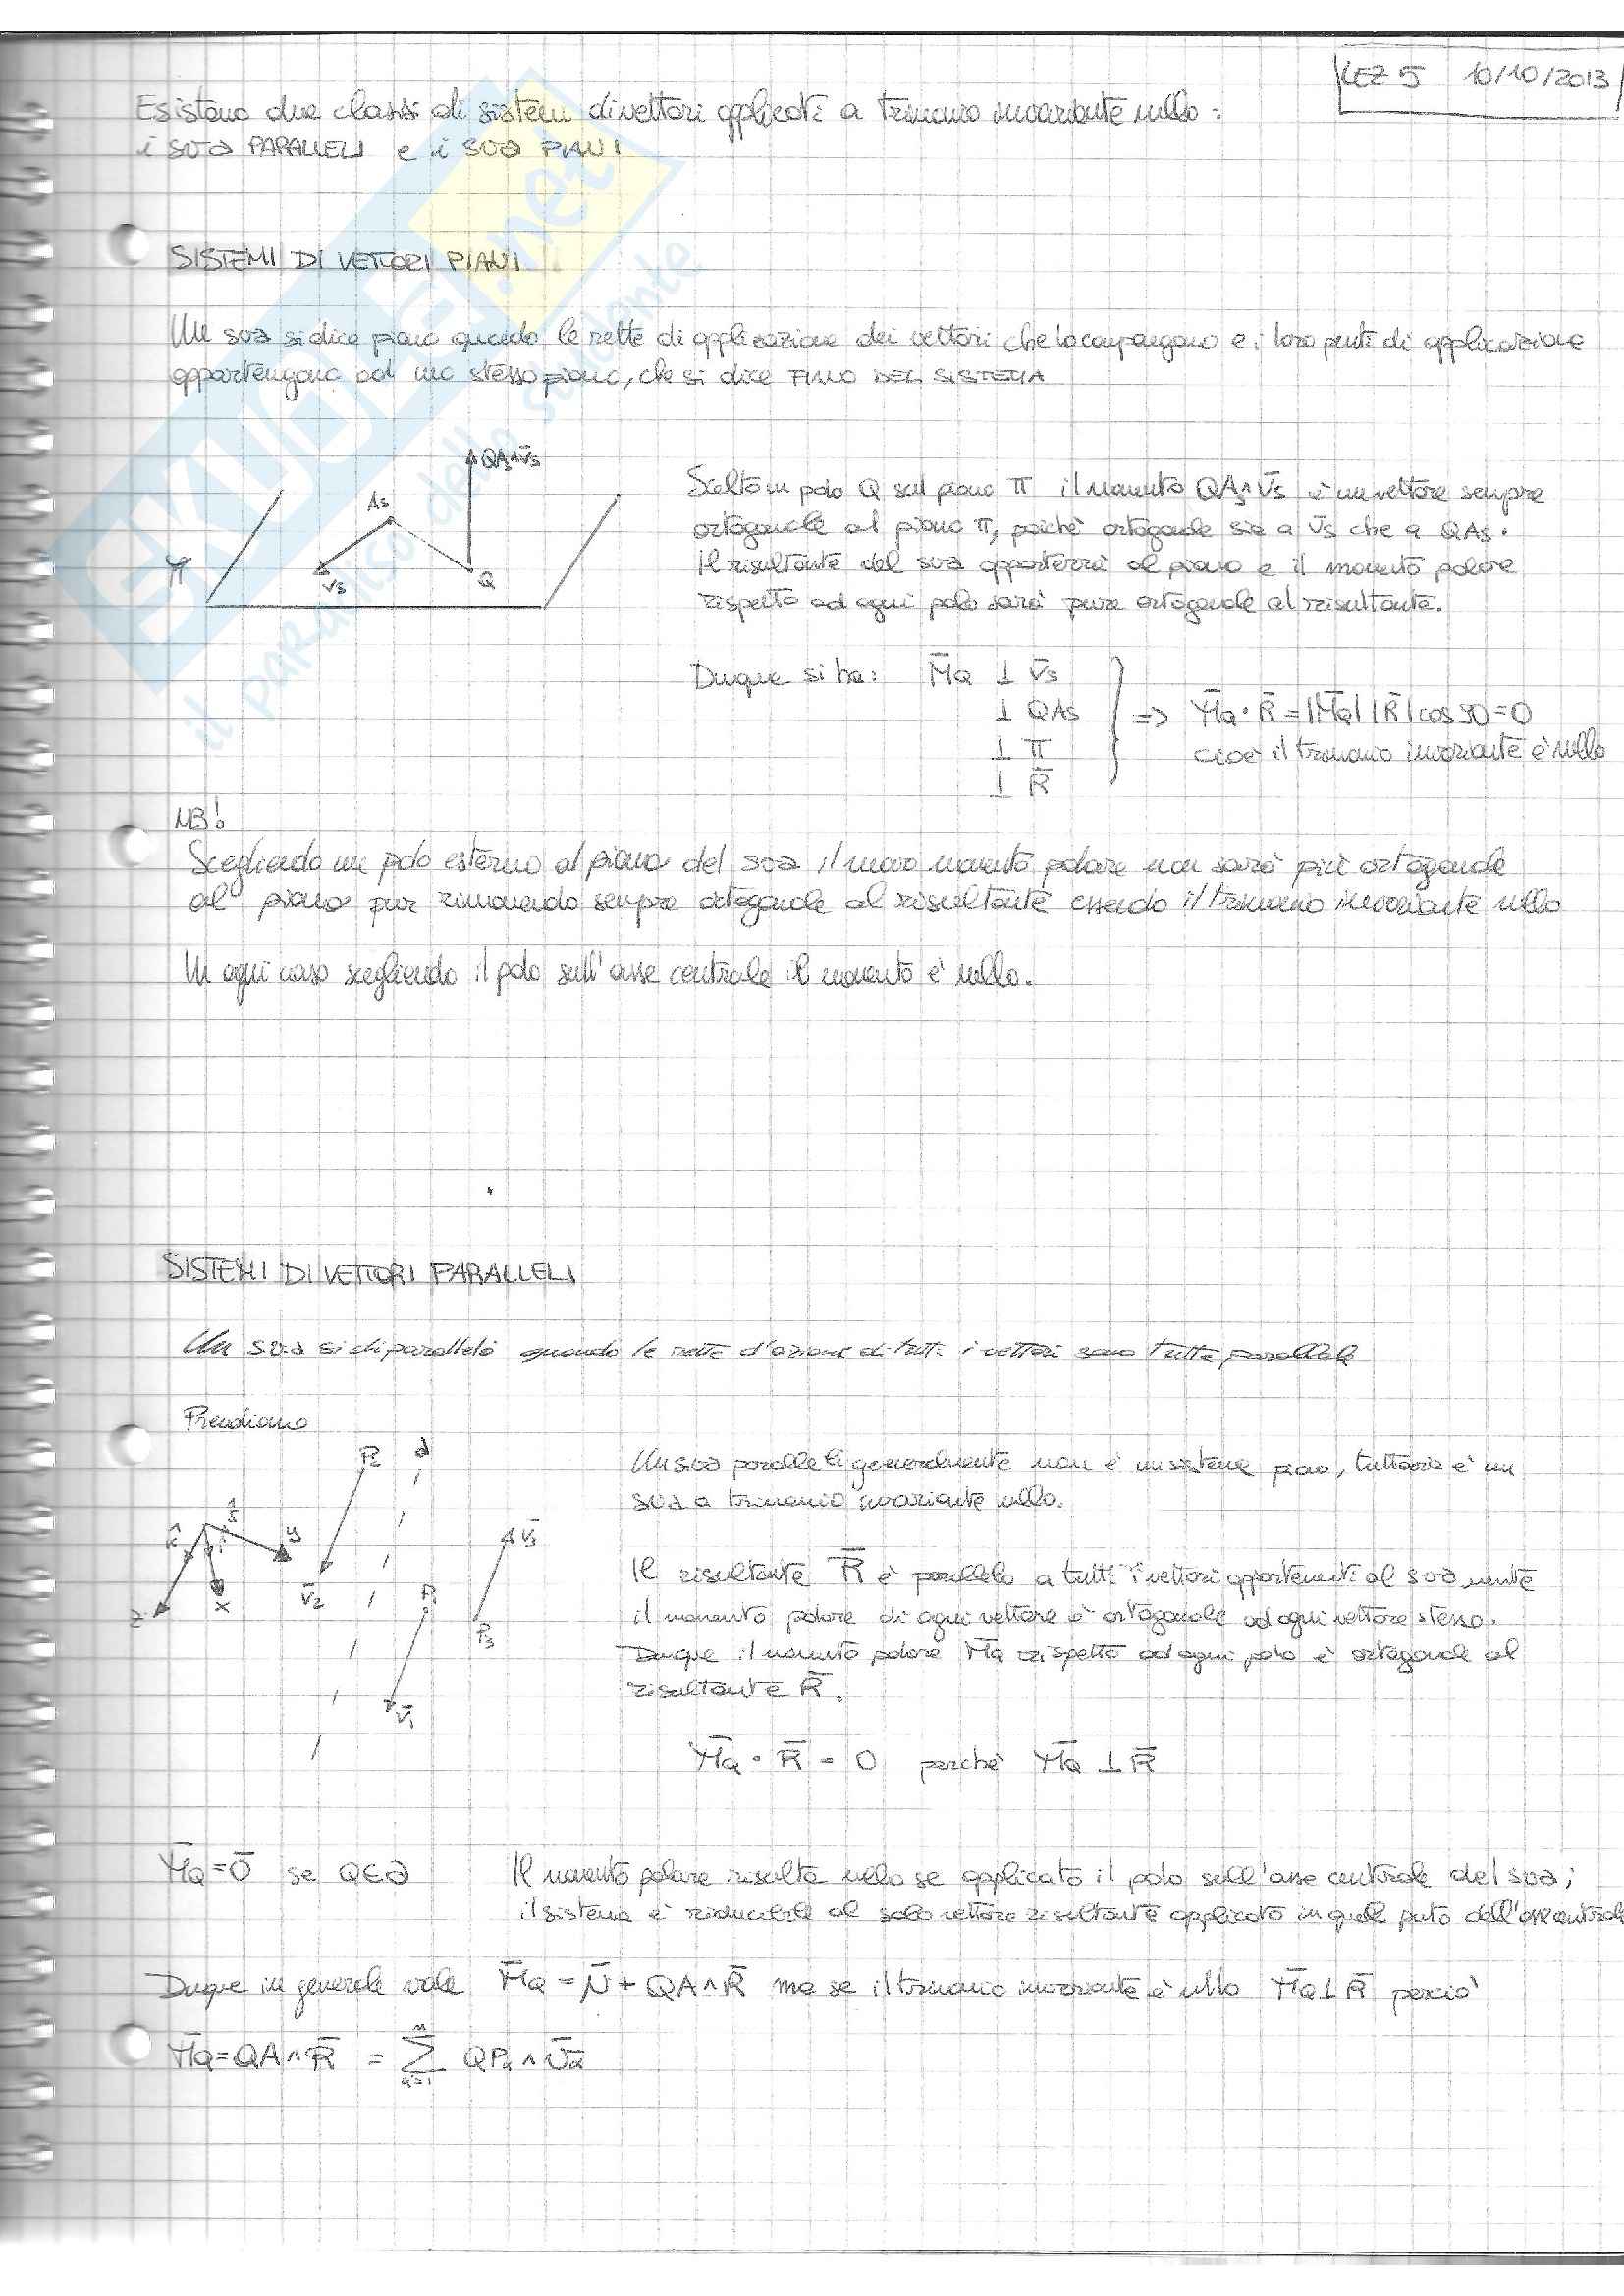 LEZ 5 10/10/2013
Esistono due classi di sistemi di vettori applicati a trinomio invariante nullo:
i sva PARALLELI e i SVA PIANI
SISTEMI DI VETTORI PIANI
Un sva si dice piano quando le rette di applicazione dei vettori che lo compongono e i loro punti di applicazione
appartengono ad uno stesso piano, che si dice PIANO DEL SISTEMA
QAs∧v̄s
As
π
v̄s
Q
Scelto un polo Q sul piano π il momento QAs∧v̄s è un vettore sempre
ortogonale al piano π, poichè ortogonale sia a v̄s che a QAs.
Il risultante del sva apparterrà al piano e il momento polare
rispetto ad ogni polo sarà pure ortogonale al risultante.
Dunque si ha: M̄Q ⊥ v̄s
⊥ QAs
⊥ π
⊥ R̄
=> M̄Q · R̄ = |M̄Q| |R̄| cos 90 = 0
cioè il trinomio invariante è nullo
NB!
Scegliendo un polo esterno al piano del sva il nuovo momento polare non sarà più ortogonale
al piano pur rimanendo sempre ortogonale al risultante essendo il trinomio invariante nullo
In ogni caso scegliendo il polo sull'asse centrale il momento è nullo.
SISTEMI DI VETTORI PARALLELI
Un sva si di parallelo quando le rette d'azione di tutti i vettori sono tutte parallele
Prendiamo
P2 a
ĵ
k̂ î y
z x
v̄2
P1
v̄3
P3
v̄1
Un sva paralleli generalmente non è un sistema piano, tuttavia è un
sva a trinomio invariante nullo.
Il risultante R̄ è parallelo a tutti i vettori appartenenti al sva mentre
il momento polare di ogni vettore è ortogonale ad ogni vettore stesso.
Dunque il momento polare M̄Q rispetto ad ogni polo è ortogonale al
risultante R̄.
M̄Q · R̄ = 0 perchè M̄Q ⊥ R̄
M̄Q = 0̄ se Q∈a Il momento polare risulta nullo se applicato il polo sull'asse centrale del sva;
il sistema è riducibile al solo vettore risultante applicato in quel punto dell'asse centrale
Dunque in generale vale M̄Q = N̄ + QA∧R̄ ma se il trinomio invariante è nullo M̄Q⊥R̄ perciò
M̄Q = QA∧R̄ = Σ QPs ∧ v̄s